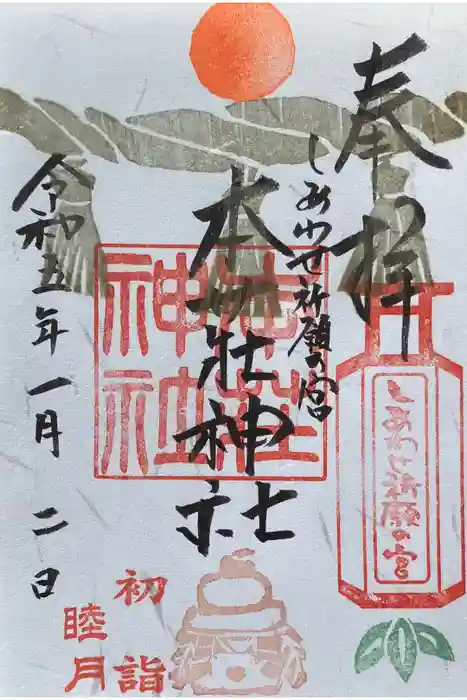 奉拝
しあわせ祈願の宮
本莊神社
令和五年一月二日
本荘神社
しあわせ祈願の宮
初詣
睦月